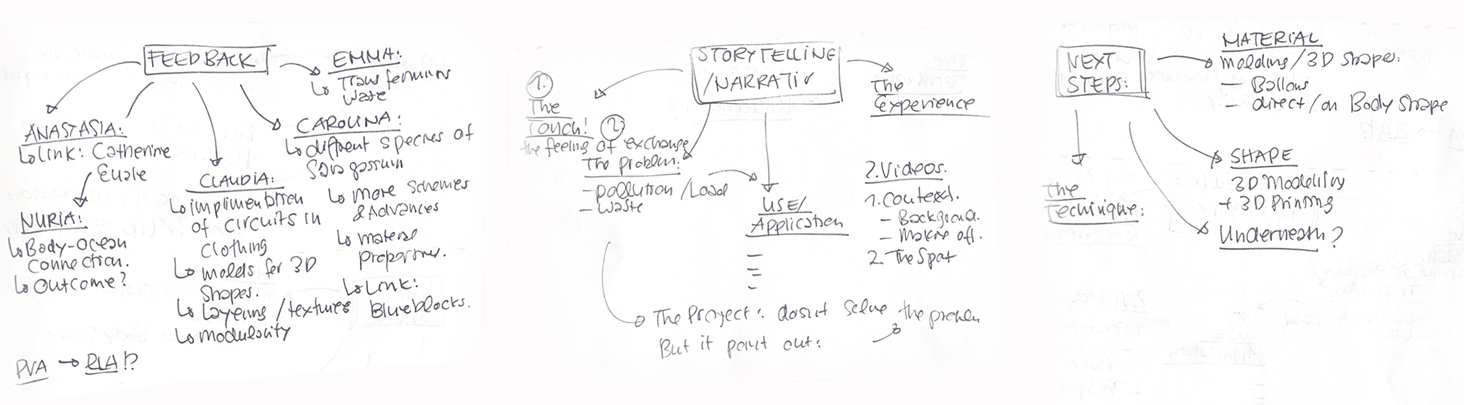 FEEDBACK
ANASTASIA:
Link: Catherine
Euale
NURIA:
Body-Ocean
Connection.
Outcome?
CLAUDIA:
implimentation
of circuits in
clothing
molds for 3D
Shapes.
Layering/textures
modulosity
EMMA:
Transforming
Waste
CAROLINA:
different species of
Sargassum
More schemes
& Advances
material
properties.
Link:
Blueblocks.
PVA → PLA!?
STORYTELLING
/NARRATIV
1.
The
Touch!
the feeling of exchange
2
The problem:
- pollution/Load
- Waste
USE/
Application
The
Experience
2. Videos.
1. Context.
- Background.
- Making off.
2. The Spot
The Project: dosnt solve the problem
But it point out:
NEXT
STEPS:
MATERIAL
molding/3D Shapes:
- Ballows
- direct/on Body Shape
SHAPE
3D Modelling
+ 3D Printing
Underneath?
The
Techinique: